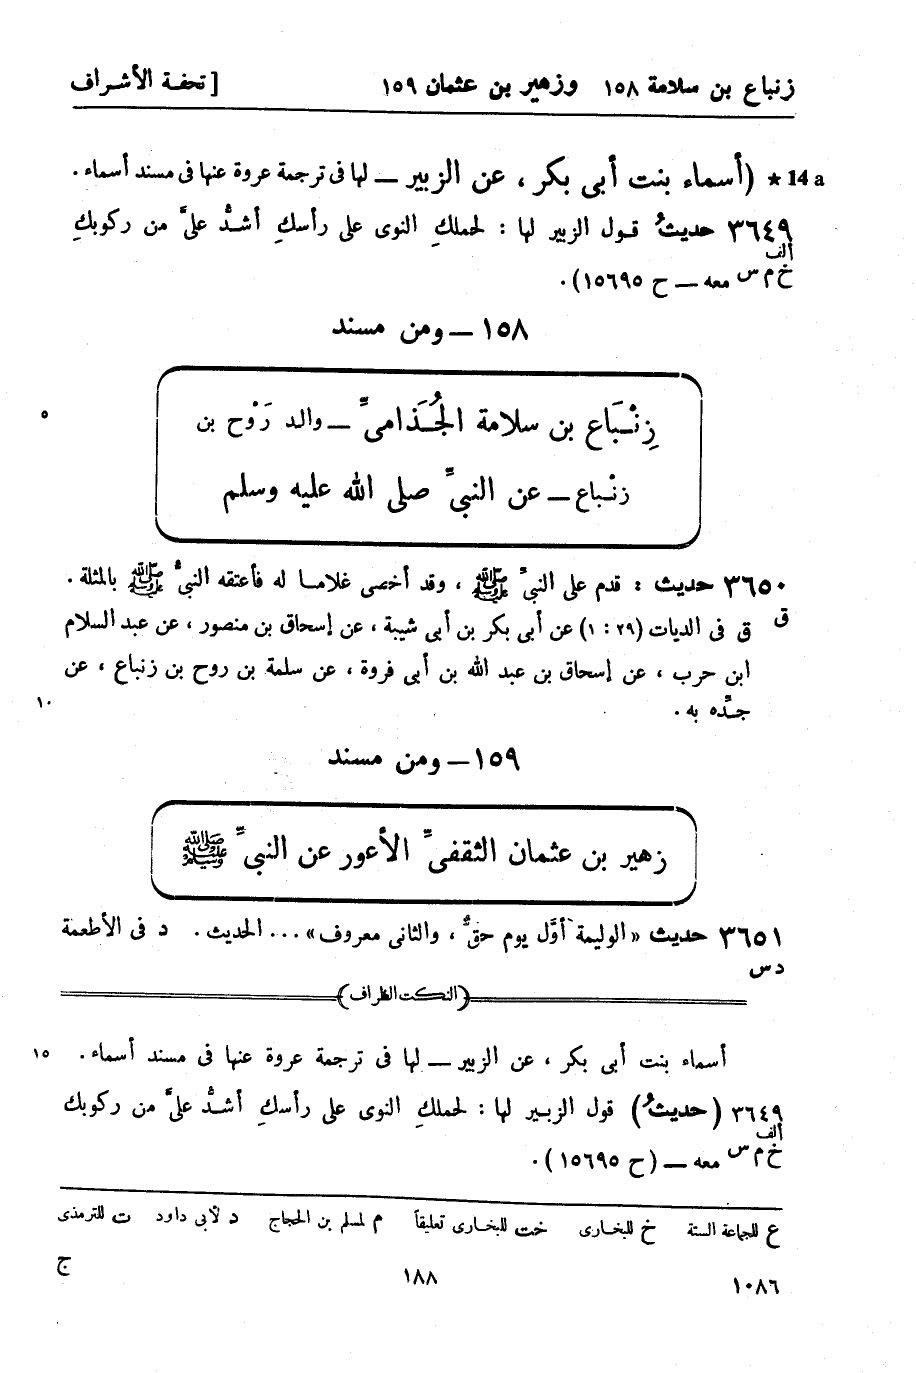 زنباع بن سلامة ١٥٨ وزهير بن عثمان ١٥٩ [ تحفة الأشراف
14 a ★ (أسماء بنت أبى بكر ، عن الزبير — لها فى ترجمة عروة عنها فى مسند أسماء .
٣٦٤٩ حديثُ قول الزبير لها : لحملكِ النوى على رأسكِ أشدُّ علىَّ من ركوبكِ
ألف
خ م س معه — ح ١٥٦٩٥) .
١٥٨ — ومن مسند
زِنْبَاع بن سلامة الجُذامىِّ — والد رَوْح بن
زنْباع — عن النبىِّ صلى الله عليه وسلم
٥
٣٦٥٠ حديث : قدم على النبىِّ ﷺ ، وقد أخصى غلاما له فأعتقه النبىُّ ﷺ بالمثلة .
ق
ق فى الديات (٢٩ : ١) عن أبى بكر بن أبى شيبة ، عن إسحاق بن منصور ، عن عبد السلام
ابن حرب ، عن إسحاق بن عبد الله بن أبى فروة ، عن سلمة بن روح بن زنباع ، عن
جدِّه به .
١٠
١٥٩ — ومن مسند
زهير بن عثمان الثقفىِّ الأعور عن النبىِّ ﷺ
٣٦٥١ حديث «الوليمة أوَّل يوم حقٌّ ، والثانى معروف» ... الحديث . د فى الأطعمة
د س
(النكت الظراف)
أسماء بنت أبى بكر ، عن الزبير — لها فى ترجمة عروة عنها فى مسند أسماء .
١٥
٣٦٤٩ (حديثُ) قول الزبير لها : لحملكِ النوى على رأسكِ أشدُّ علىَّ من ركوبك
ألف
خ م س معه — (ح ١٥٦٩٥) .
ع للجماعة الستة خ للبخارى خت للبخارى تعليقاً م لمسلم بن الحجاج د لأبى داود ت للترمذى
١٠٨٦ ١٨٨ ج